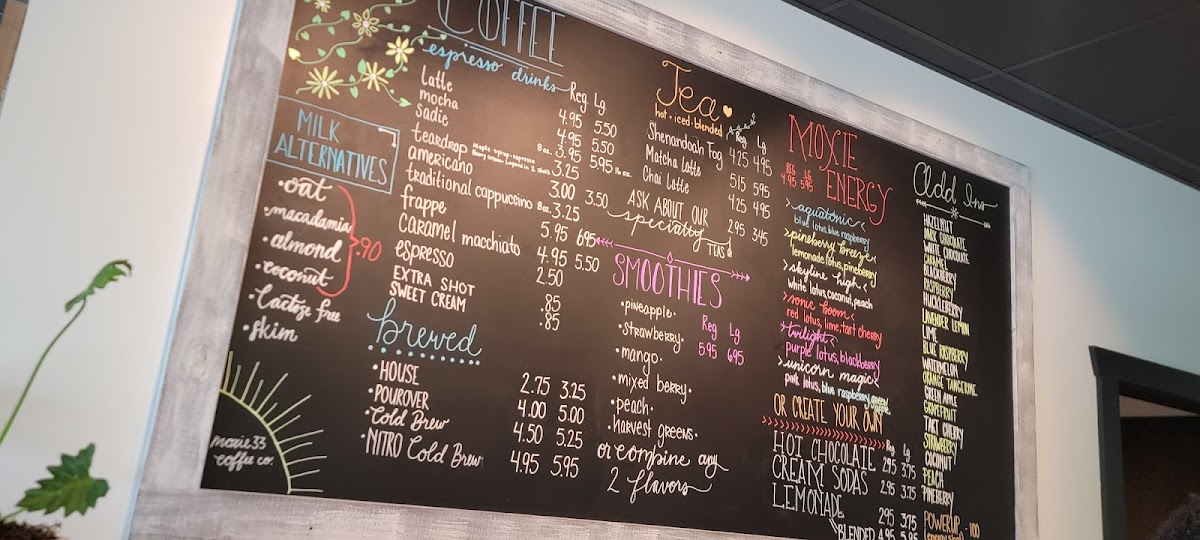 COFFEE
espresso drinks Reg Lg
latte 4.95 5.50
mocha 4.95 5.50
sadie 8oz. 3.95 5.95 16oz.
teardrop maple syrup, espresso 3.25
americano 3.00 3.50
traditional cappuccino 8oz. 3.25
frappe 5.95 6.95
caramel macchiato 4.95 5.50
espresso 2.50
EXTRA SHOT .85
SWEET CREAM .85
MILK
ALTERNATIVES
•oat
•macadamia
•almond .90
•coconut
•lactose free
•skim
moxie 33
coffee co.
brewed
•HOUSE 2.75 3.25
•POUROVER 4.00 5.00
•Cold Brew 4.50 5.25
•NITRO Cold Brew 4.95 5.95
Tea
hot•iced•blended Reg Lg
Shenandoah Fog 4.25 4.95
Matcha latte 5.15 5.95
Chai latte 4.25 4.95
ASK ABOUT OUR 2.95 3.45
specialty TEAS
SMOOTHIES
Reg Lg
5.95 6.95
•pineapple•
•strawberry•
•mango•
•mixed berry•
•peach•
•harvest greens•
or combine any
2 flavors
MOXIE
ENERGY
REG LG
4.95 5.95
>aquatonic<
blue lotus, blue raspberry
>pineberry breeze<
lemonade lotus, pineberry
>skyline high<
white lotus, coconut, peach
>sonic boom<
red lotus, lime, tart cherry
>twilight<
purple lotus, blackberry
>unicorn magic<
pink lotus, blue raspberry, green apple
OR CREATE YOUR OWN
Reg Lg
HOT CHOCOLATE 2.95 3.75
CREAM SODAS 2.95 3.75
LEMONADE 2.95 3.75
BLENDED 4.95 5.95
Add Ins
HAZELNUT
DARK CHOCOLATE
WHITE CHOCOLATE
CARAMEL
BLACKBERRY
RASPBERRY
HUCKLEBERRY
LAVENDER LEMON
LIME
BLUE RASPBERRY
WATERMELON
ORANGE TANGERINE
GREEN APPLE
GRAPEFRUIT
TART CHERRY
STRAWBERRY
COCONUT
PEACH
PINEBERRY
POWERUP -1.00
(energy shot)